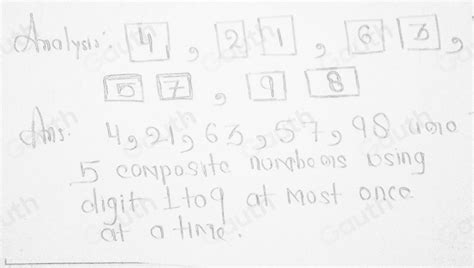 Analysis: 4, 21, 63,
57, 98
Ans. 4, 21, 63, 57, 98 are
5 composite numbers using
digit 1 to 9 at most once
at a time.